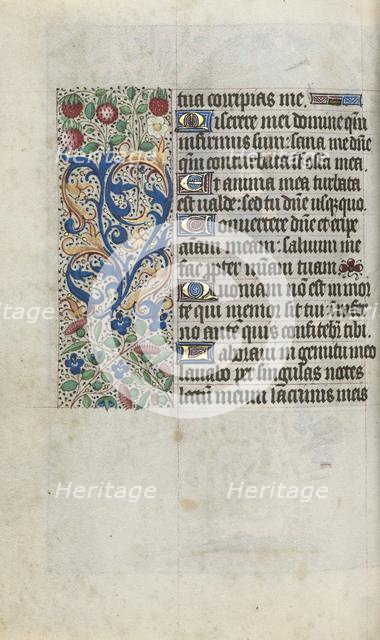 tua corripias me.
Miserere mei domine qm̄
infirmus sum: sana me dn̄e
qm̄ conturbata sūt ossa mea.
Et anima mea turbata
est ualde: sed tu dn̄e usq̄quo.
Conuertere dn̄e et eripe
animam meam: saluum me
fac ꝓpter m̄iam tuam
Quoniam nō est in mor
te qui memor sit tui: in īfer
no autē quis confitebit̄ tibi.
Laboraui in gemitu meo
lauabo per singulas noctes
lectū meum lacrimis meis
Heritage
Images
Heritage
Images
Heritage
Heritage